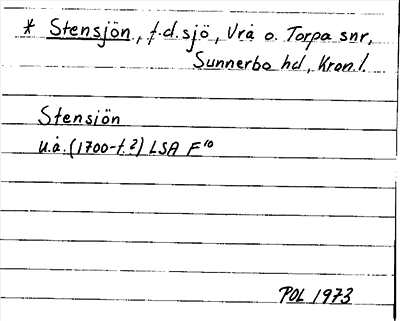 * Stensjön, f.d. sjö, Vrå o. Torpa snr,
Sunnerbo hd, Kron. l.
Stensiön
u.å. (1700-t.?) LSA F¹⁰
POL 1973